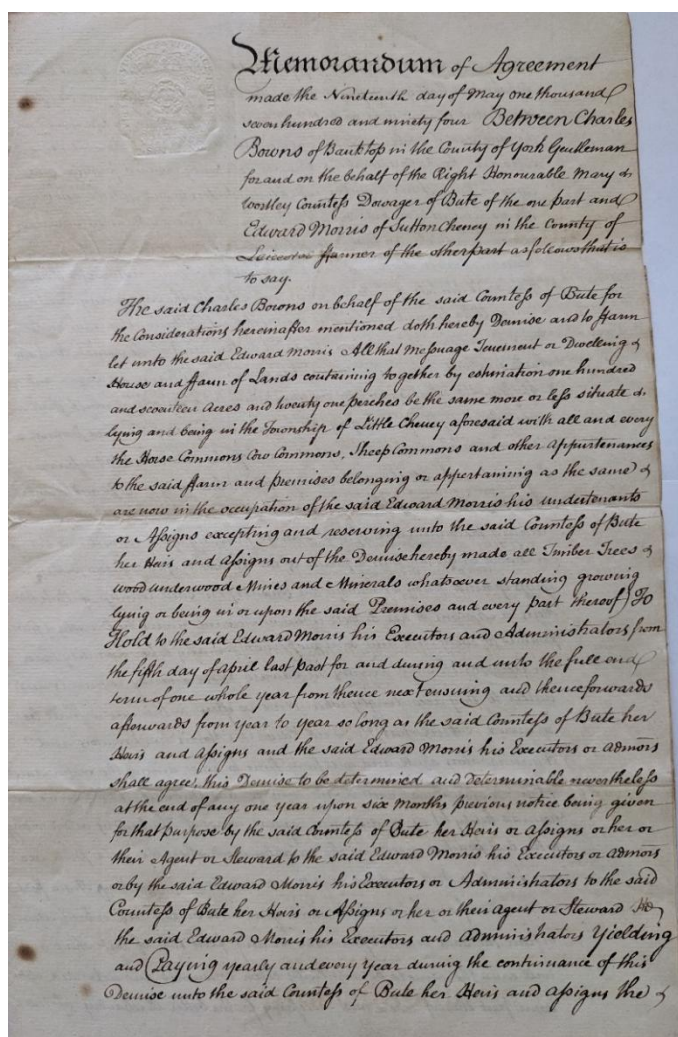 Memorandum of Agreement
made the Nineteenth day of May one thousand
seven hundred and ninety four Between Charles
Bowns of Banktop in the County of York Gentleman
for and on the behalf of the Right Honourable Mary
Wortley Countess Dowager of Bute of the one part and
Edward Morris of Sutton Cheney in the County of
Leicester ffarmer of the other part as follows that is
to say.
The said Charles Bowns on behalf of the said Countess of Bute for
the Considerations hereinafter mentioned doth hereby Demise and to ffarm
let unto the said Edward Morris All that Messuage Tenement or Dwelling
House and ffarm of Lands containing together by estimation one hundred
and seventeen Acres and twenty one perches be the same more or less situate
lying and being in the Township of Little Cheney aforesaid with all and every
the Horse Commons Cow Commons, Sheep Commons and other Appurtenances
to the said ffarm and Premises belonging or appertaining as the same
are now in the occupation of the said Edward Morris his undertenants
or Assigns excepting and reserving unto the said Countess of Bute
her Heirs and Assigns out of the Demise hereby made all Timber Trees
wood underwood Mines and Minerals whatsoever standing growing
lying or being in or upon the said Premises and every part thereof To
Hold to the said Edward Morris his Executors and Administrators from
the fifth day of April last past for and during and unto the full end
term of one whole year from thence next ensuing and thenceforwards
afterwards from year to year so long as the said Countess of Bute her
Heirs and Assigns and the said Edward Morris his Executors or admors
shall agree, this Demise to be determined and Determinable nevertheless
at the end of any one year upon six months previous notice being given
for that purpose by the said Countess of Bute her Heirs or Assigns or her or
their Agent or Steward to the said Edward Morris his Executors or admors
or by the said Edward Morris his Executors or Administrators to the said
Countess of Bute her Heirs or Assigns or her or their agent or Steward He
the said Edward Morris his Executors and administrators Yielding
and Paying yearly and every Year during the continuance of this
Demise unto the said Countess of Bute her Heirs and Assigns the